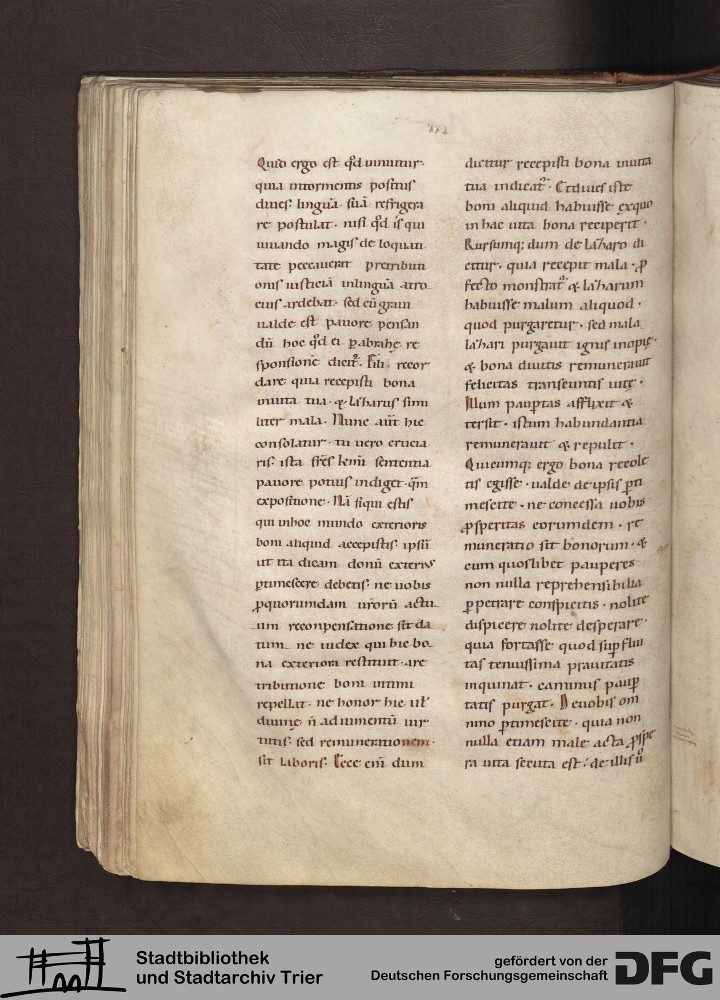 Quid ergo est qd́ innuitur·
quia intormentis positus
diues· linguā suā refrigera
re postulat· nisi qd́ is qui
uiuando magis de loquaci
tate peccauerat p retributi
onis iusticiā inlingua atro
cius ardebat· sed cū graui
ualde est pauore pensan
dū hoc qd́ ei p abrahę re
sponsione dicit᷑· Fili, recor
dare quia recepisti bona
inuita tua· & lazarus simi
liter mala. Nunc aut̄ hic
consolatur· tu uero crucia
ris· ista frēs kmī sententia
pauore potius indiget· qm̄
expositione· Nā siqui estis
qui inhoc mundo exterioris
boni aliquid accepistis· ipsū
ut ita dicam donū exterius
ptimescere debetis· ne uobis
pquorumdam urōrū actu
um reconpensatione sit da
tum· ne iudex qui hic bo
na exteriora restituit· a re
tributione boni intimi
repellat· ne honor hic ul᷑
diuitię n̄ adiumentū uir
tutis· sed remunerationem·
sit laboris. Ecce eni᷑ dum
dicitur recepisti bona inuita
tua indicat᷑· Et diues iste
boni aliquid habuisse exquo
in hac uita bona reciperit·
Rursumq; dum de lazaro di
citur· quia recepit mala· p
fecto monstrat᷑ & lazarum
habuisse malum aliquod·
quod purgaretur· sed mala
lazari purgauit ignis inopię·
& bona diuitis remunerauit
felicitas transeuntis uitę·
Illum paup̄tas afflixit &
tersit· istum habundantia
remunerauit & repulit·
Quicumq; ergo bona recole
tis egisse· ualde de ipsis p̄ti
mescite· ne concessa uobis
p̄speritas eorumdem· re
muneratio sit bonorum· &
cum quoslibet pauperes
non nulla reprehensibilia
p̄petrare conspicitis· nolite
dispicere nolite desperare·
quia fortasse quod sup̄flui
tas tenuissima prauitatis
inquinat· caminus paup̄
tatis purgat. De uobis om
nino p̄timescite· quia non
nulla etiam male acta p̄spe
ra uita secuta est· de illis u᷑
Stadtbibliothek
und Stadtarchiv Trier
gefördert von der
Deutschen Forschungsgemeinschaft
DFG